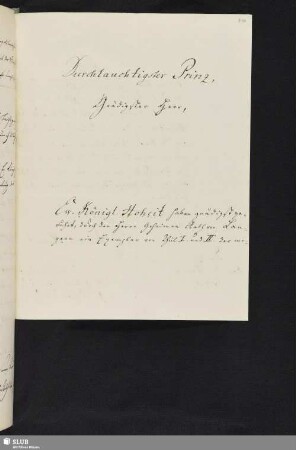 Durchlauchtigster Prinz,
Gnädigster Herr,
Ew. Königl. Hoheit haben gnädigst ge-
durch den Herrn Geheimen
ein Exemplar von Theil I. und II. der
SLUB
Wir führen Wissen.